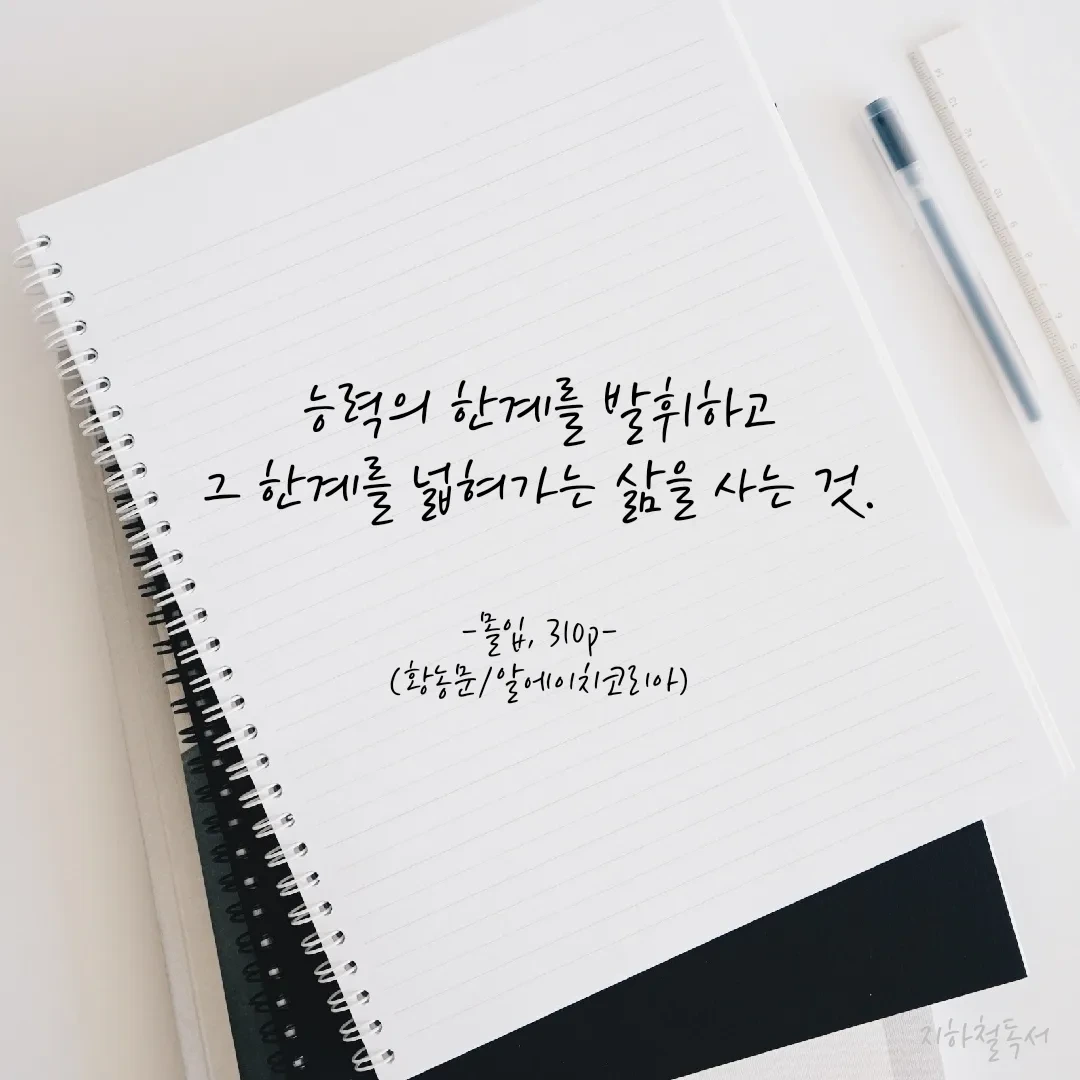 능력의 한계를 발휘하고
그 한계를 넓혀가는 삶을 사는 것.
-몰입, 310p-
(황농문/알에이치코리아)
지하철독서